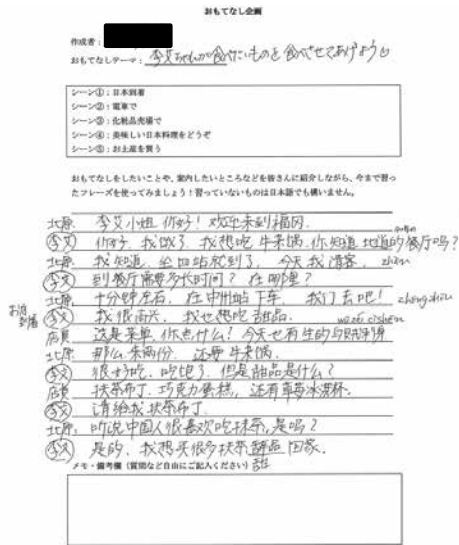 おもてなし企画
作成者：
おもてなしテーマ：李艾ちゃんが食べたいものを食べさせてあげよう
シーン①：日本到着
シーン②：電車で
シーン③：化粧品売場で
シーン④：美味しい日本料理をどうぞ
シーン⑤：お土産を買う
おもてなしをしたいことや、案内したいところなどを皆さんに紹介しながら、今まで習っ
たフレーズを使ってみましょう！習っていないものは日本語でも構いません。
北原 李艾小姐 你好！欢迎来到福冈.
李艾 你好. 我饿了. 我想吃 牛来锅. 你知道 地道的餐厅吗？
北原 我知道. 坐四站就到了. 今天我请客.
李艾 到餐厅需要多长时间？ 在哪里？
北原 十分钟左右. 在中州站下车. 我们去吧！ zhong zhou
お店到着
李艾 我很高兴. 我也想吃 甜品.
店員 这是菜单. 你点什么？ 今天也有生的
北原 那么. 来两份. 还要 牛来锅.
李艾 很好吃. 吃饱了. 但是甜品是什么？
店員 抹茶布丁. 巧克力蛋糕, 还有草莓冰淇淋.
李艾 请给我 抹茶布丁.
北原 听说中国人很喜欢吃抹茶. 是吗？
李艾 是的. 我想买很多抹茶甜品 回家.
甜
メモ・備考欄（質問など自由にご記入ください）